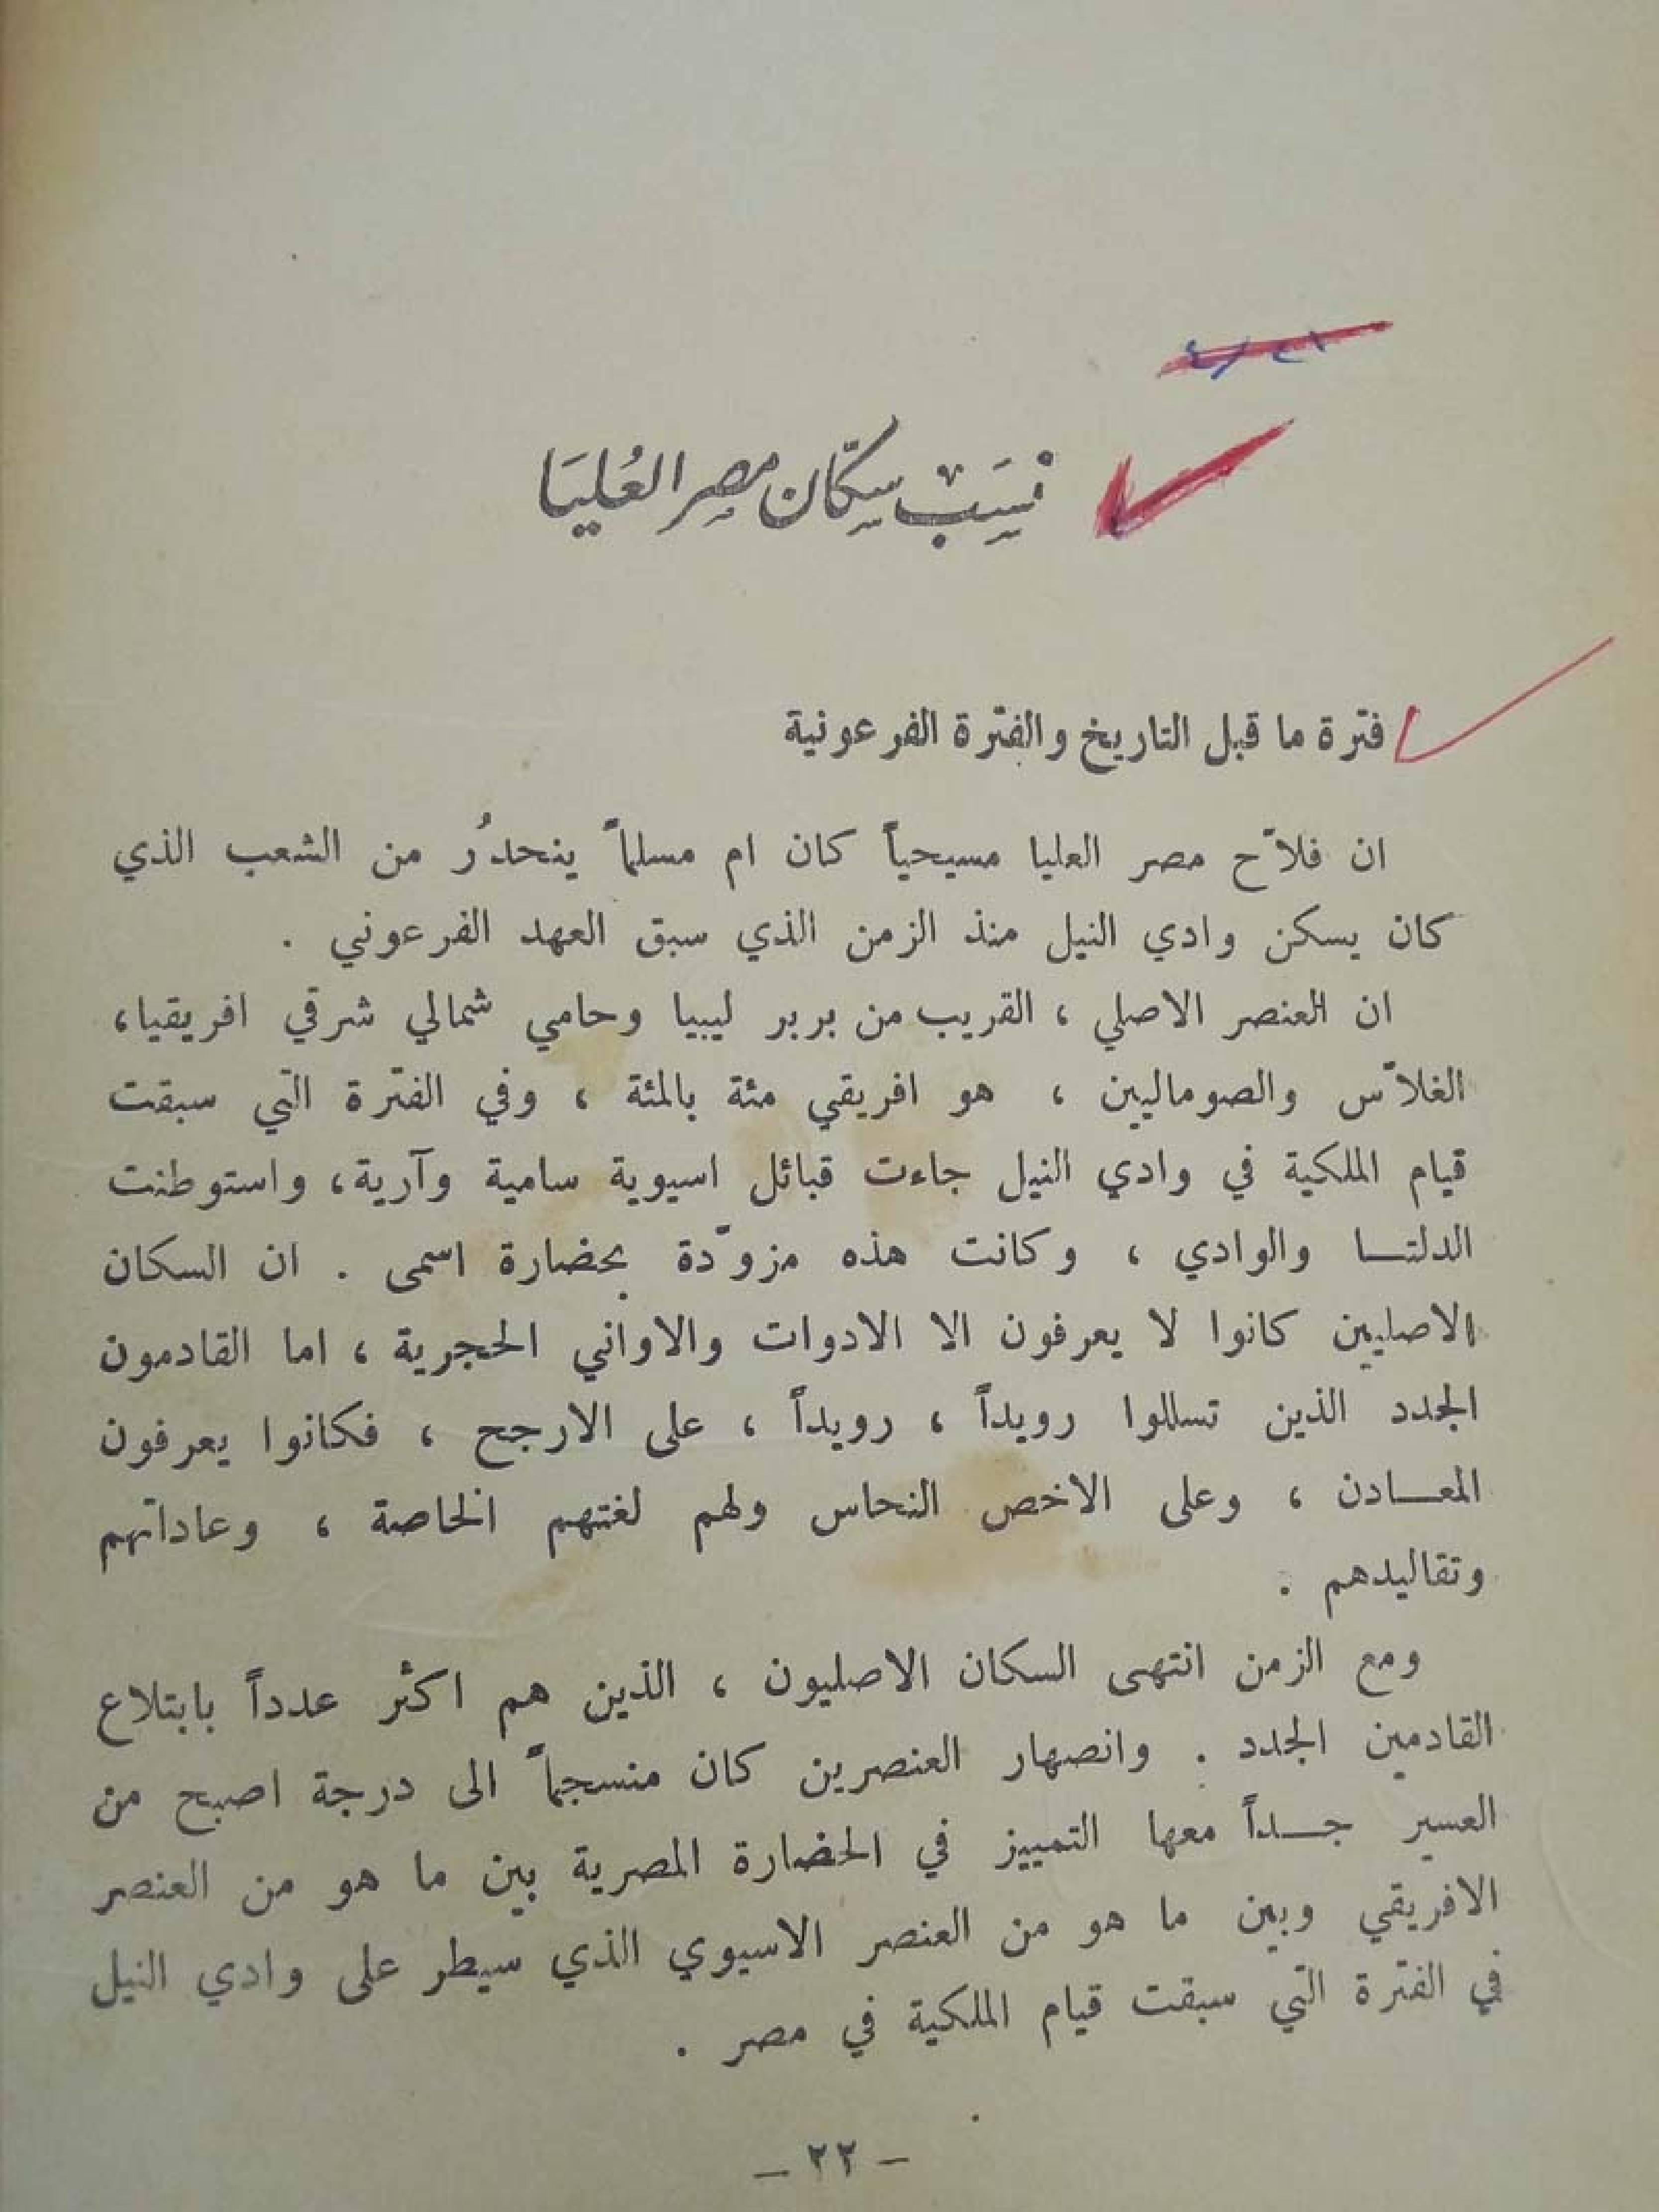 نسَب سكّان مصر العُليَا
فترة ما قبل التاريخ والفترة الفرعونية
ان فلاّح مصر العليا مسيحياً كان ام مسلماً ينحدرُ من الشعب الذي
كان يسكن وادي النيل منذ الزمن الذي سبق العهد الفرعوني .
ان العنصر الاصلي ، القريب من بربر ليبيا وحامي شمالي شرقي افريقيا،
الغلاّس والصوماليين ، هو افريقي مئة بالمئة ، وفي الفترة التي سبقت
قيام الملكية في وادي النيل جاءت قبائل اسيوية سامية وآرية، واستوطنت
الدلتـا والوادي ، وكانت هذه مزوّدة بحضارة اسمى . ان السكان
الاصليين كانوا لا يعرفون الا الادوات والاواني الحجرية ، اما القادمون
الجدد الذين تسللوا رويداً ، رويداً ، على الارجح ، فكانوا يعرفون
المعـادن ، وعلى الاخص النحاس ولهم لغتهم الخاصة ، وعاداتهم
وتقاليدهم .
ومع الزمن انتهى السكان الاصليون ، الذين هم اكثر عدداً بابتلاع
القادمين الجدد . وانصهار العنصرين كان منسجماً الى درجة اصبح من
العسير جـداً معها التمييز في الحضارة المصرية بين ما هو من العنصر
الافريقي وبين ما هو من العنصر الاسيوي الذي سيطر على وادي النيل
في الفترة التي سبقت قيام الملكية في مصر .
– ٢٢ –